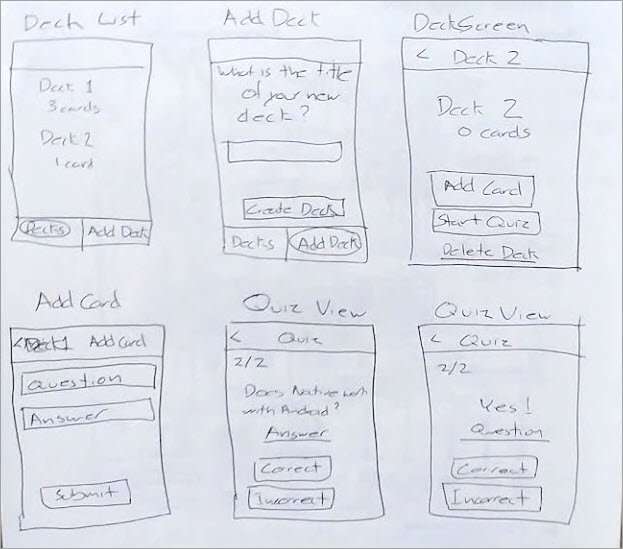 Deck List
Deck 1
3 cards
Deck 2
1 card
Decks
Add Deck
Add Deck
What is the title
of your new
deck?
Create Deck
Decks
Add Deck
DeckScreen
< Deck 2
Deck 2
0 cards
Add Card
Start Quiz
Delete Deck
Add Card
< Deck 1 Add Card
Question
Answer
Submit
Quiz View
< Quiz
2/2
Does Native work
with Android?
Answer
Correct
Incorrect
Quiz View
< Quiz
2/2
Yes!
Question
Correct
Incorrect